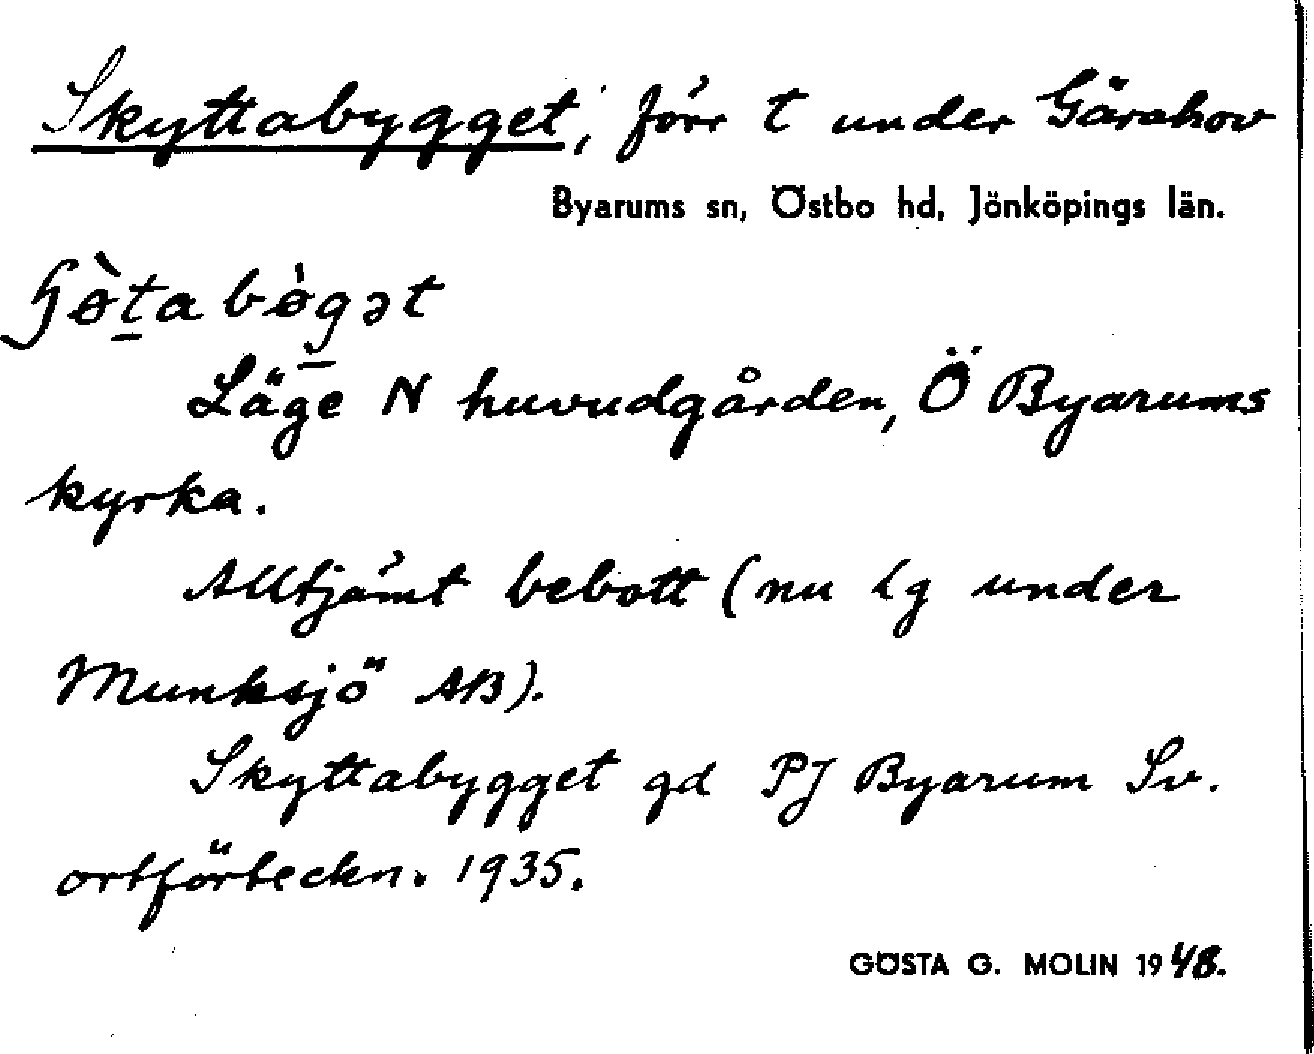 Skyttabygget, förr t under Gärahov
Byarums sn, Östbo hd, Jönköpings län.
ʃɵ̀ta bɵ̀gət
Läge N huvudgården, Ö Byarums
kyrka.
Alltjämt bebott (nu lg under
Munksjö AB).
Skyttabygget gd PJ Byarum Sv.
ortförteckn. 1935.
GÖSTA G. MOLIN 1948.